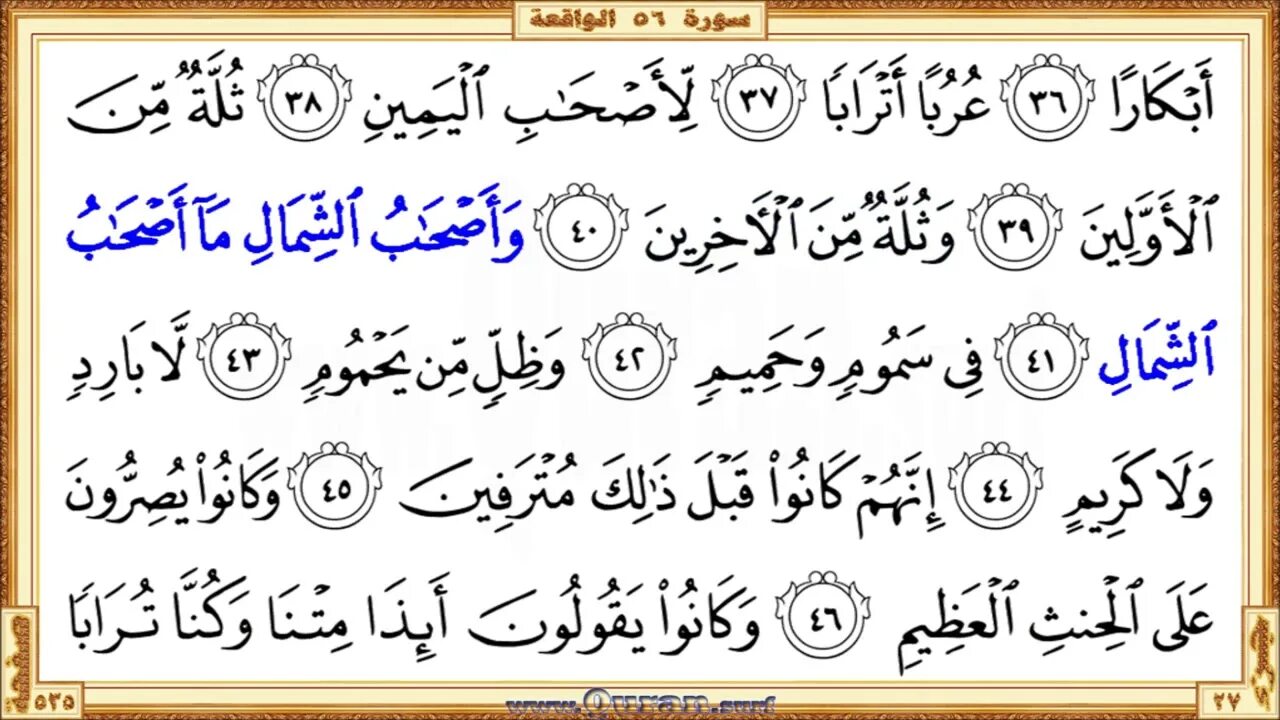 سورة ٥٦ الواقعة
أَبۡكَارًا ٣٦ عُرُبًا أَتۡرَابٗا ٣٧ لِّأَصۡحَٰبِ ٱلۡيَمِينِ ٣٨ ثُلَّةٞ مِّنَ
ٱلۡأَوَّلِينَ ٣٩ وَثُلَّةٞ مِّنَ ٱلۡأٓخِرِينَ ٤٠ وَأَصۡحَٰبُ ٱلشِّمَالِ مَآ أَصۡحَٰبُ
ٱلشِّمَالِ ٤١ فِي سَمُومٖ وَحَمِيمٖ ٤٢ وَظِلّٖ مِّن يَحۡمُومٖ ٤٣ لَّا بَارِدٖ
وَلَا كَرِيمٍ ٤٤ إِنَّهُمۡ كَانُواْ قَبۡلَ ذَٰلِكَ مُتۡرَفِينَ ٤٥ وَكَانُواْ يُصِرُّونَ
عَلَى ٱلۡحِنثِ ٱلۡعَظِيمِ ٤٦ وَكَانُواْ يَقُولُونَ أَئِذَا مِتۡنَا وَكُنَّا تُرَابٗا
٥٣٥
www.Quran.surf
٢٧